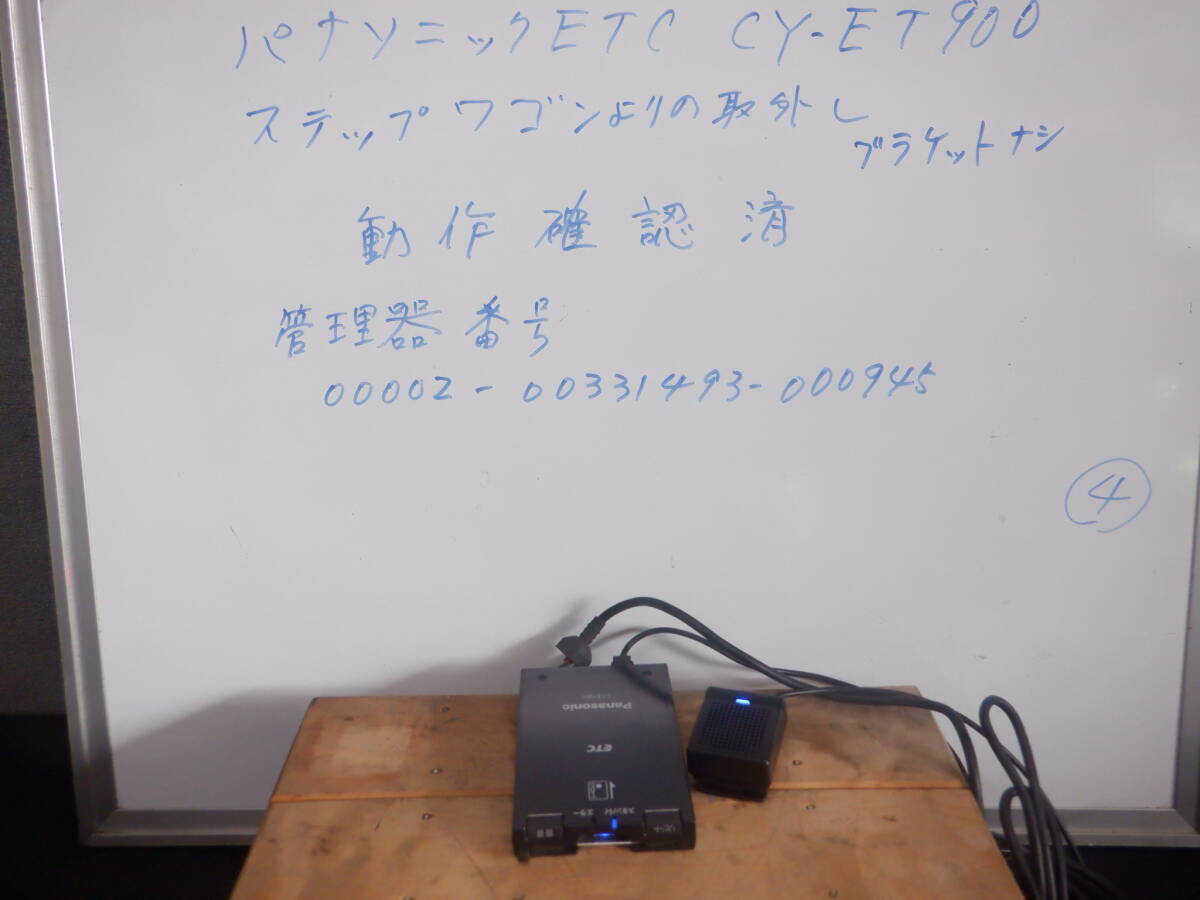 パナソニックETC CY-ET900
ステップワゴンよりの取外し
ブラケットナシ
動作確認済
管理器番号
00002-00331493-000945
4
Panasonic
ETC
エラー
スタンバイ
リピート